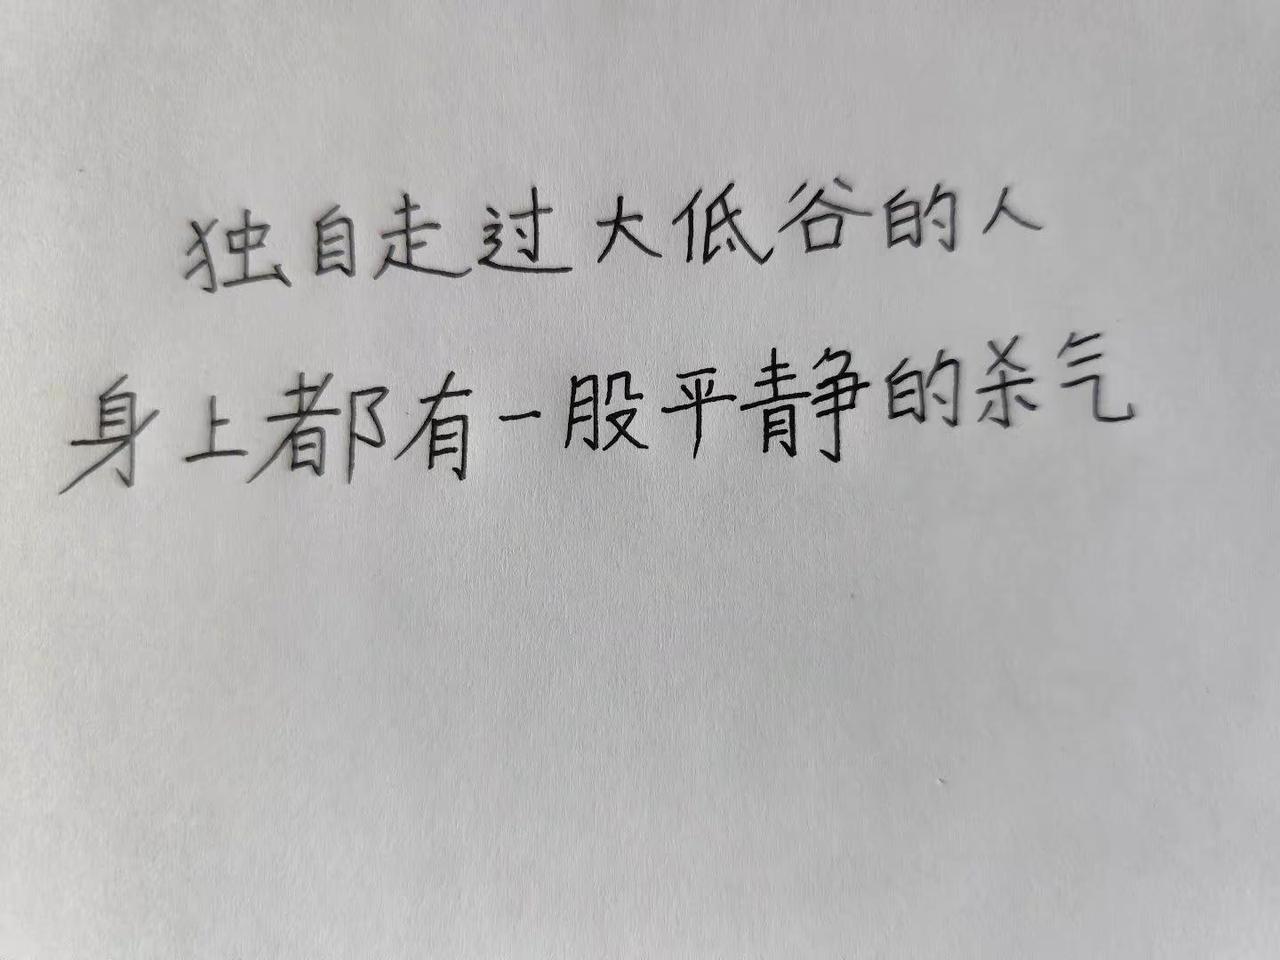 独自走过大低谷的人
身上都有一股平静的杀气